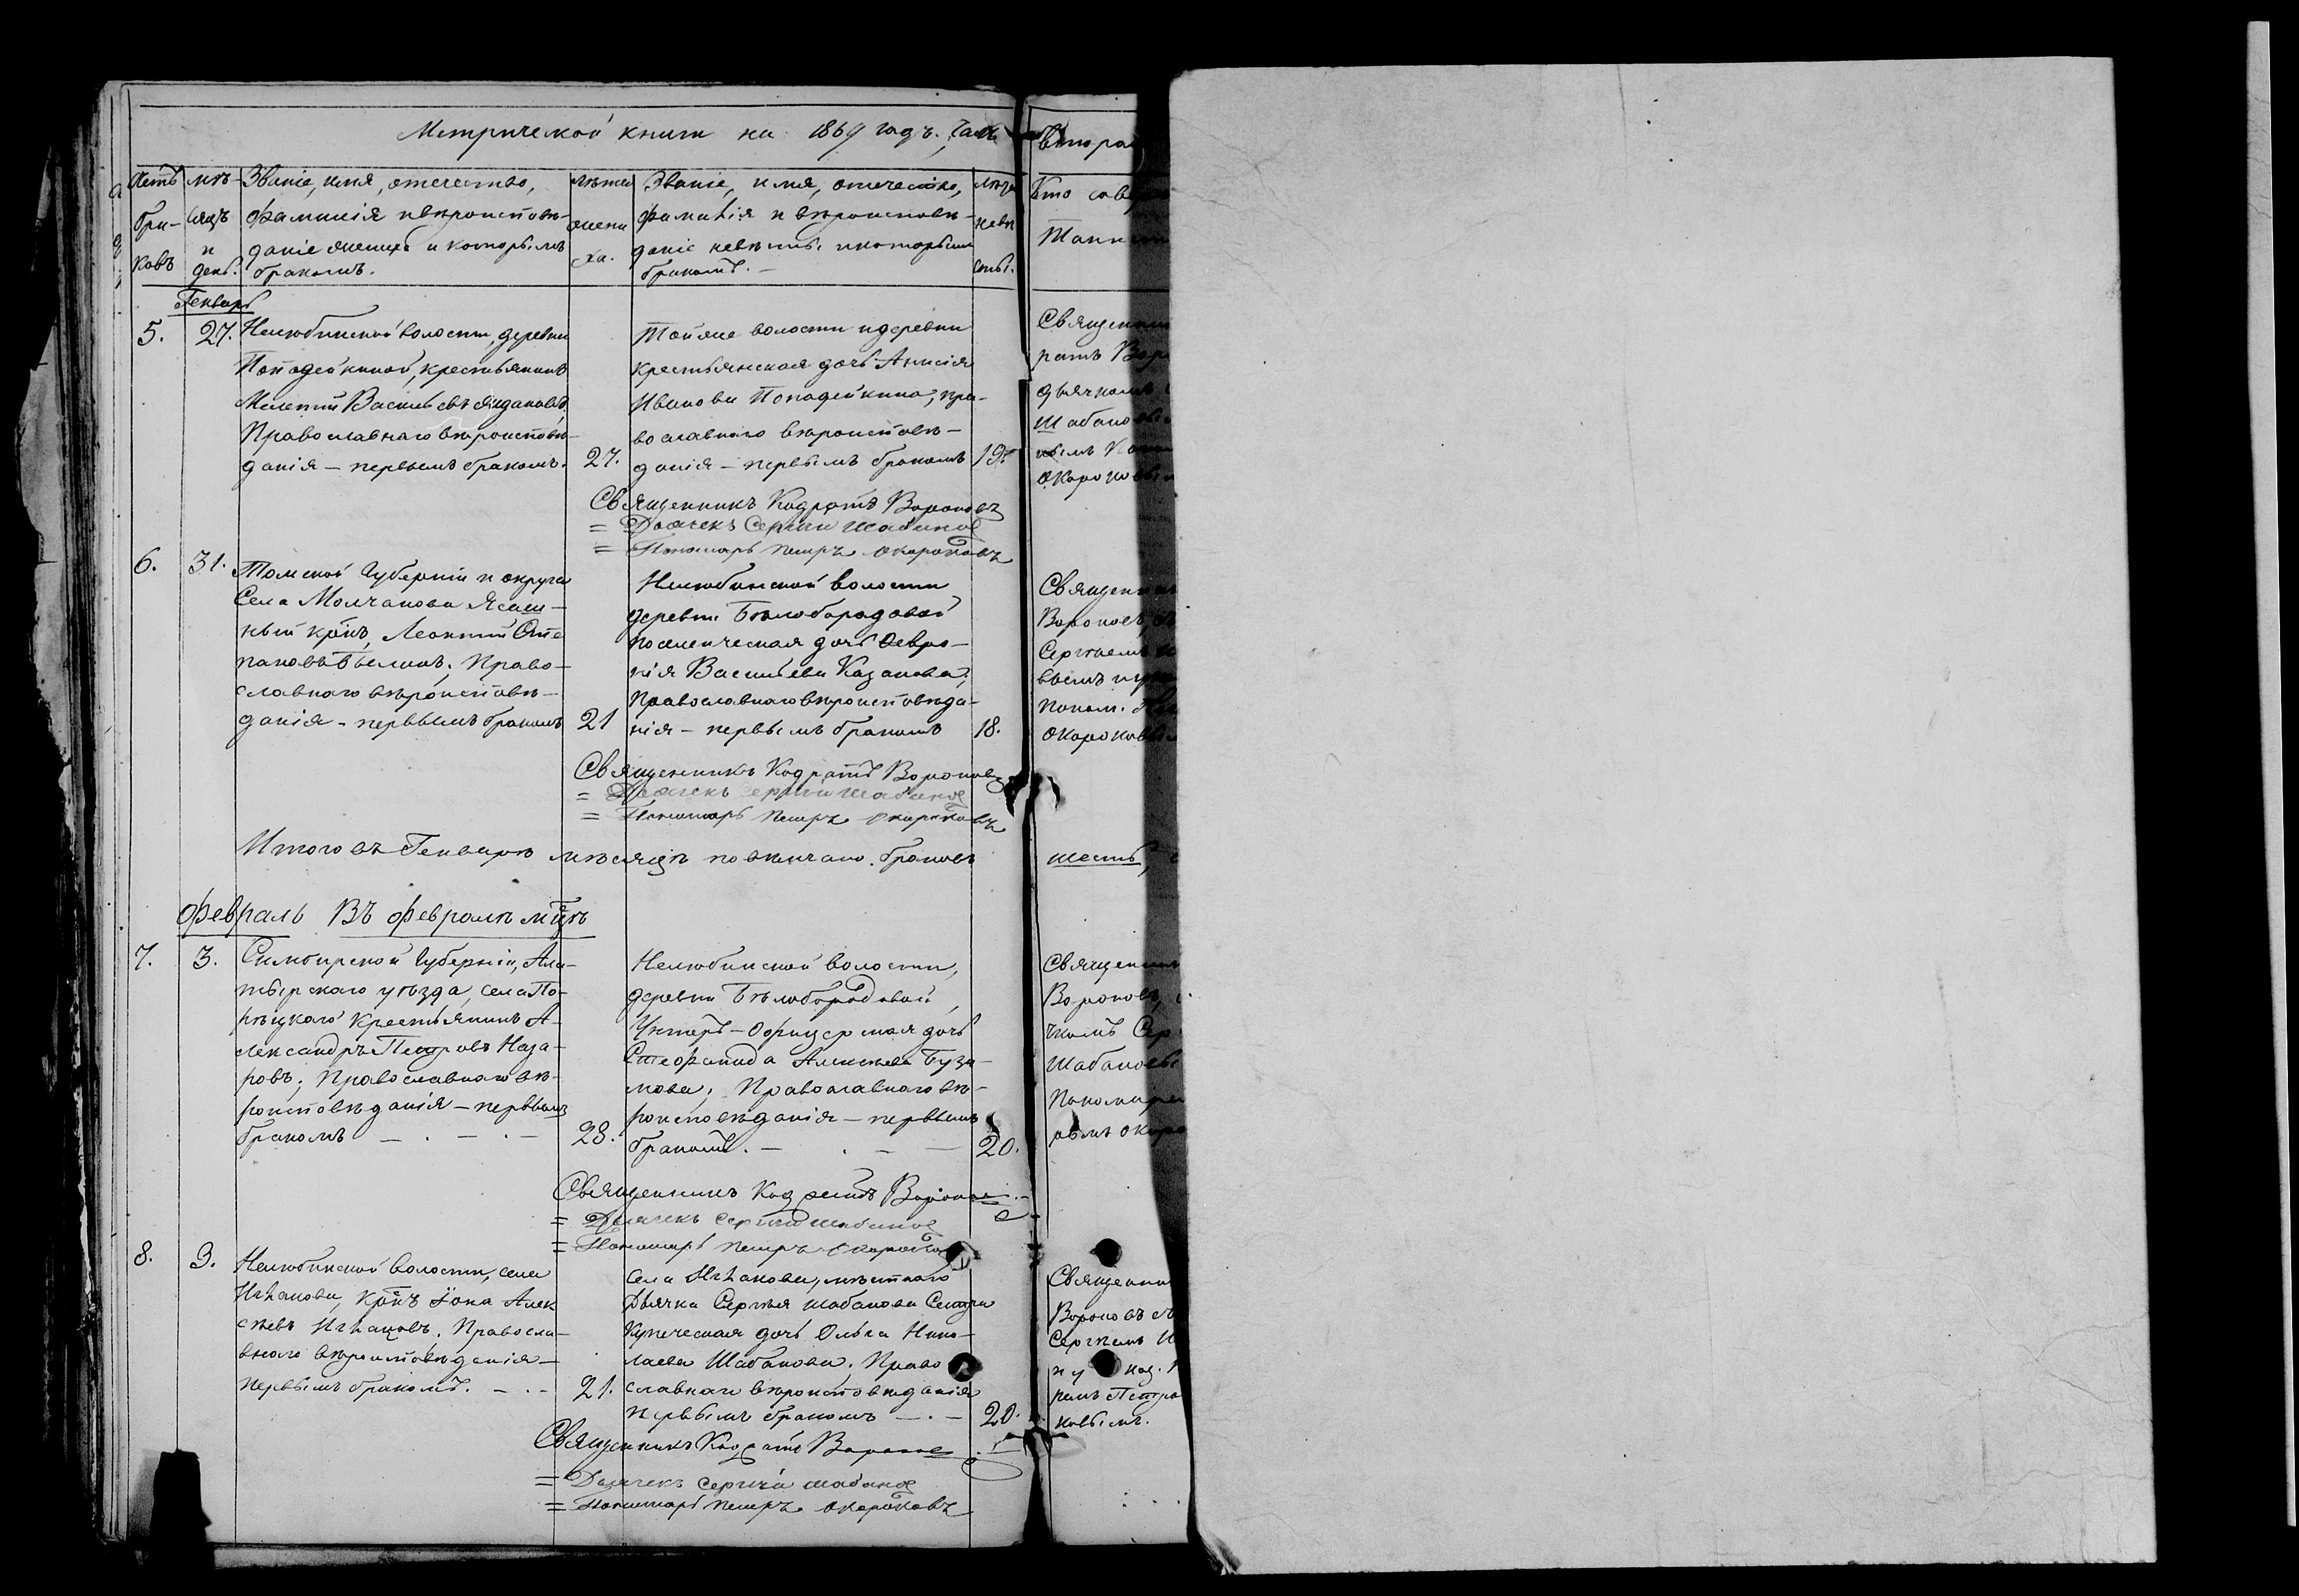 Метрической книги на 1869 годъ, часть вторая
Счетъ бра-ковъ
мѣ-сяцъ и день.
Званіе, имя, отечество,
фамилія и вѣроисповѣ-
даніе жениха и которымъ
бракомъ.
лѣта жени-ха.
Званіе, имя, отечество,
фамилія и вѣроисповѣ-
даніе невѣсты. и которымъ
бракомъ. —
лѣта невѣ-сты.
Кто
Генварь
5. 27. Нелюбинской волости, деревни
Попадейкиной, крестьянинъ
Мелетій Васильевъ
Православнаго вѣроисповѣ-
данія — первымъ бракомъ. 27.
Тойже волости и деревни
крестьянская дочь Анисія
Иванова Попадейкина, пра-
вославнаго вѣроисповѣ-
данія — первымъ бракомъ 19.
Священникъ Кодратъ Вороновъ
= Дьячекъ Сергій Шабановъ
= Пономарь Петръ Окороковъ
6. 31. Томской Губерніи и округа
Села Молчанова Ясаш-
ный крнъ, Леонтій Сте
пановъ Право-
славнаго вѣроисповѣ-
данія — первымъ бракомъ 21
Нелюбинской волости
деревни Бѣлобородовой
поселенческая дочь Февро-
нія Васильева Казакова,
православнаго вѣроисповѣда-
нія — первымъ бракомъ 18.
Священникъ Кодратъ Вороновъ
= Дьячекъ Сергій Шабановъ
= Пономарь Петръ Окороковъ
Итого въ Генварѣ мѣсяцѣ повѣнчано браковъ шесть,
Февраль Въ Февралѣ мцѣ
7. 3. Симбирской Губерніи, Ала-
тырскаго уѣзда, села По-
рѣцкаго Крестьянинъ А-
лександръ Петровъ Наза-
ровъ; Православнаго вѣ-
роисповѣданія — первымъ
бракомъ — . — . — 28.
Нелюбинской волости,
деревни Бѣлобородовой,
Унтеръ-Офицерская дочь
Стефанида Алексѣева Буза-
нова; Православнаго вѣ-
роисповѣданія — первымъ
бракомъ. — . — — 20.
Священникъ Кодратъ Вороновъ
= Дьячекъ Сергій Шабановъ
= Пономарь Петръ Окороковъ
8. 9. Нелюбинской волости, села
Иглакова, крнъ Іона Алек
сѣевъ Иглаковъ. Правосла-
внаго вѣроисповѣданія —
первымъ бракомъ. — . - 21.
села Иглакова, мѣстнаго
Дьячка Сергѣя Шабанова Сестра
Купеческая дочь Ольга Нико-
лаева Шабанова. Право
славнаго вѣроисповѣданія
первымъ бракомъ — . — 20.
Священникъ Кодратъ Вороновъ
= Дьячекъ Сергій Шабановъ
= Пономарь Петръ Окороковъ